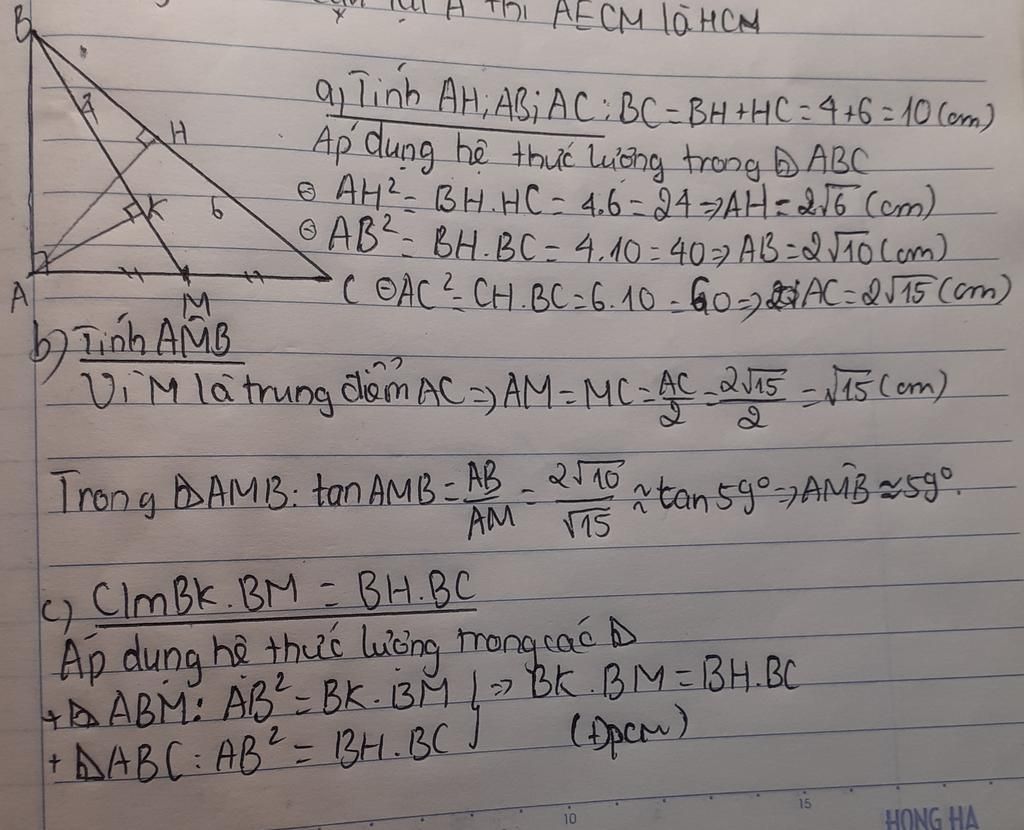 A thì AECM là HCM
B
H
K
6
A
M
C
a) Tính AH; AB; AC: BC = BH + HC = 4 + 6 = 10 (cm)
Áp dụng hệ thức lượng trong Δ ABC
⊖ AH² = BH.HC = 4.6 = 24 ⇒ AH = 2√6 (cm)
⊖ AB² = BH.BC = 4.10 = 40 ⇒ AB = 2√10 (cm)
⊖ AC² = CH.BC = 6.10 = 60 ⇒ AC = 2√15 (cm)
b) Tính AM̂B
Vì M là trung điểm AC ⇒ AM = MC = AC/2 = 2√15/2 = √15 (cm)
Trong Δ AMB: tan AMB = AB/AM = 2√10/√15 ≈ tan 59° ⇒ AM̂B ≈ 59°.
c) C/m BK.BM = BH.BC
Áp dụng hệ thức lượng trong các Δ
+ Δ ABM: AB² = BK.BM } ⇒ BK.BM = BH.BC
+ Δ ABC: AB² = BH.BC (Đpcm)
10
15
HONG HA